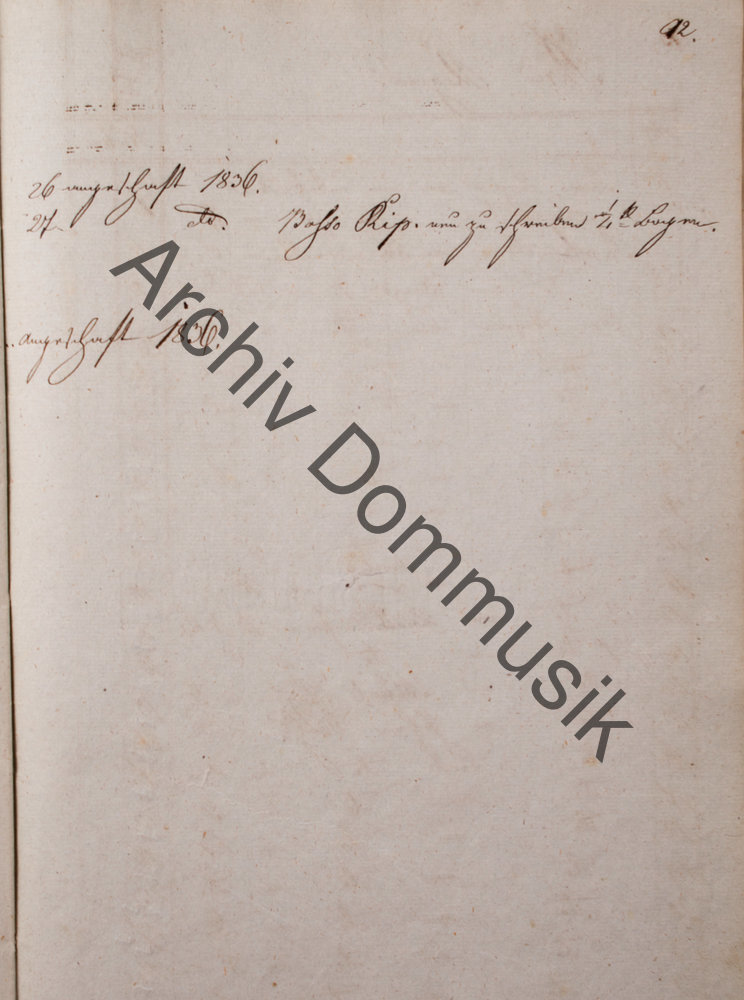 12.
26 angeschaft 1836.
27 do. Basso Rip. neu zu schreiben 1/4 Bogen.
angeschaft 1836.
Archiv Dommusik